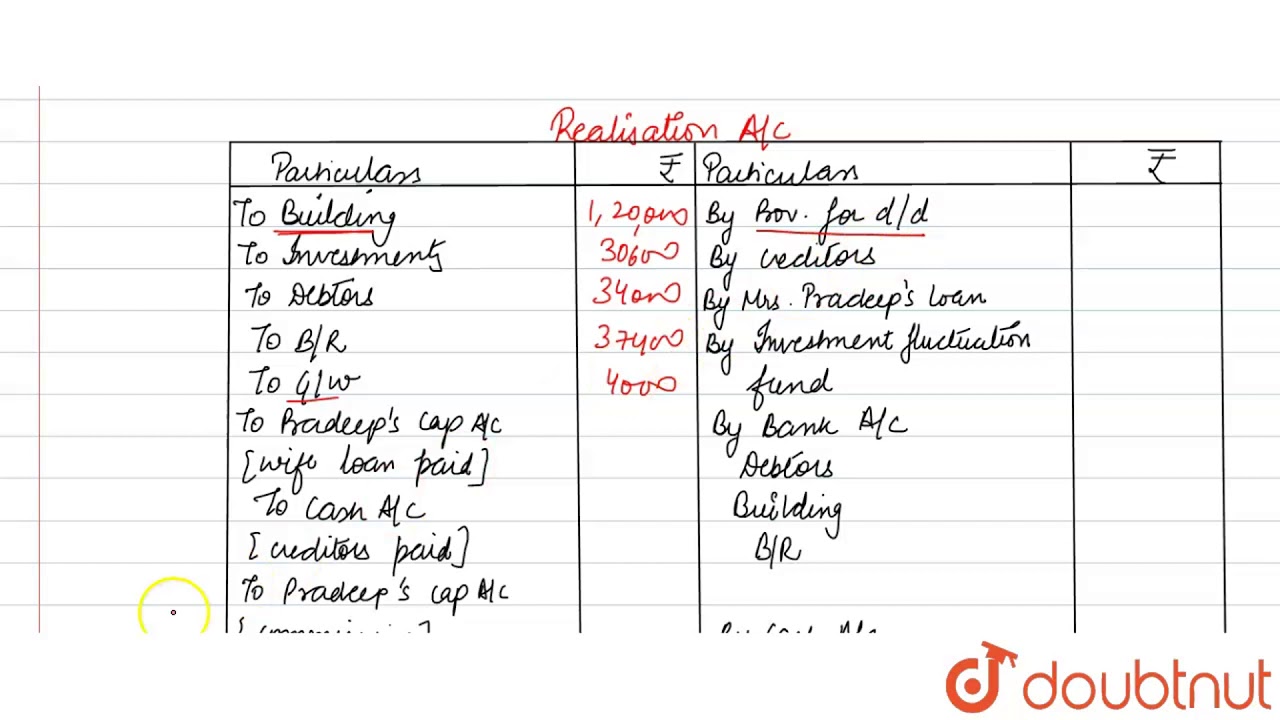 Realisation A/C
Particulars ₹ Particulars ₹
To Building 1,20,000 By Prov. for d/d
To Investments 30600 By creditors
To Debtors 34000 By Mrs. Pradeep's loan
To B/R 37400 By Investment fluctuation
To G/w 4000 fund
To Pradeep's cap A/C By Bank A/C
[wife loan paid] Debtors
To Cash A/C Building
[creditors paid] B/R
To Pradeep's cap A/C
By Cash A/c
doubtnut